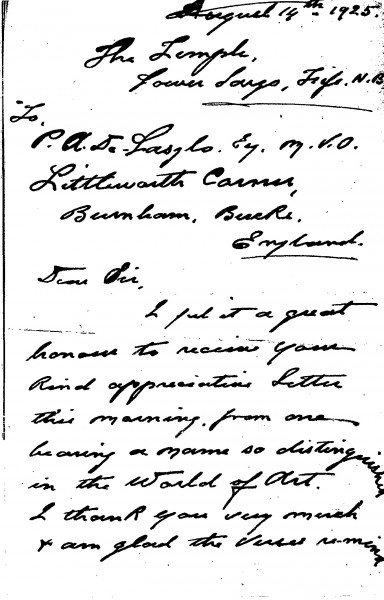 August 14th 1925.
The Temple,
Lower Largo, Fife. N.B
To,
P. A. De-Laszlo. Esq. M.V.O.
Littleworth Corner,
Burnham, Bucks.
England.
Dear Sir,
I feel it a great
honour to receive your
Kind appreciative Letter
this morning, from one
bearing a name so distinguished
in the World of Art.
I thank you very much
& am glad the Verses remind